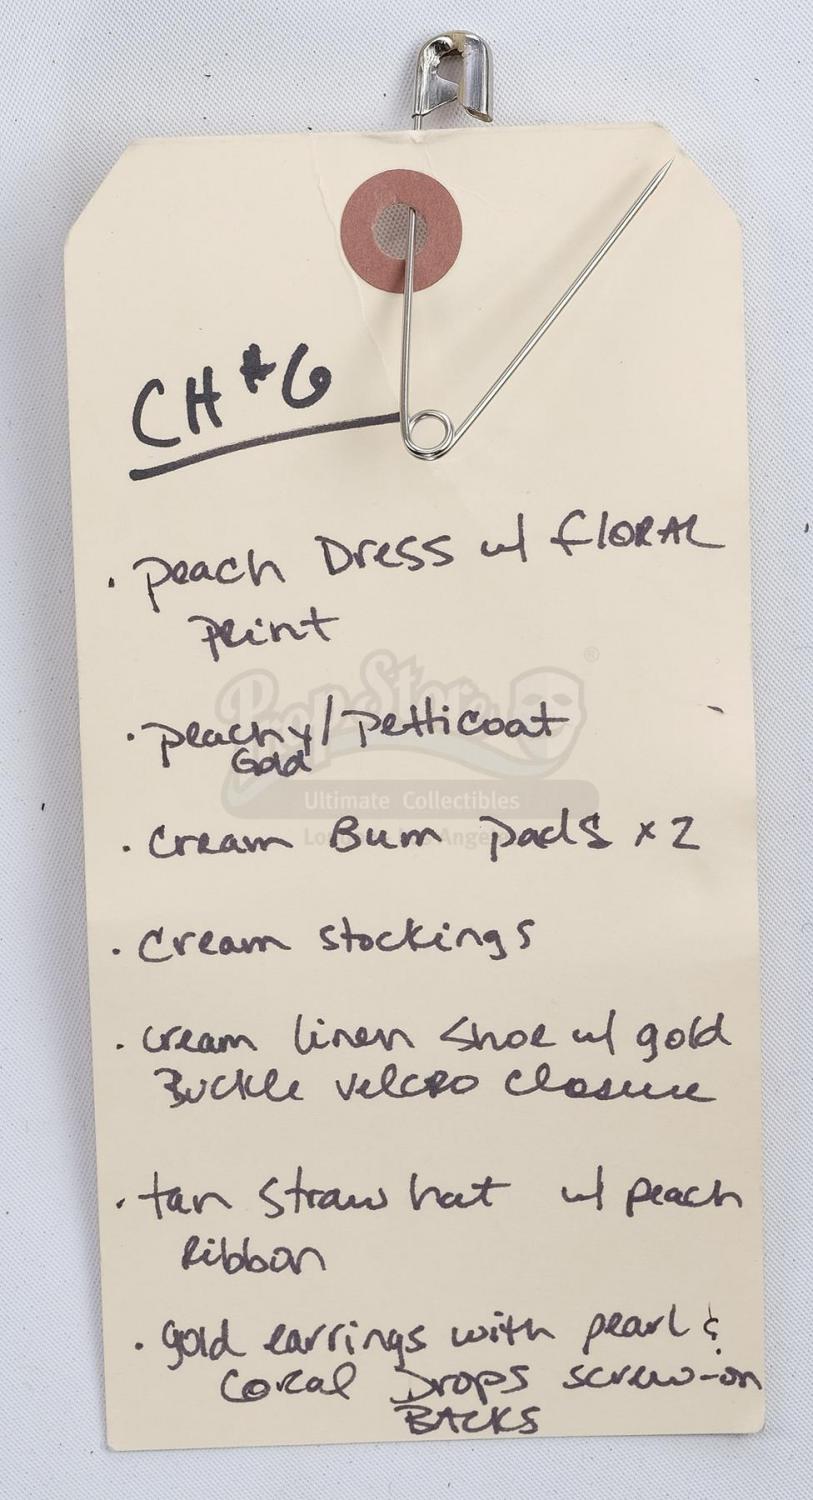 CH #6
· peach Dress w/ floral
print
· peachy/petticoat
Gold
· cream Bum pads x 2
· cream stockings
· cream linen shoe w/ gold
Buckle velcro closure
· tan straw hat w/ peach
Ribbon
· gold earrings with pearl &
coral Drops screw-on
BACKS
Prop Store ®
Ultimate Collectibles